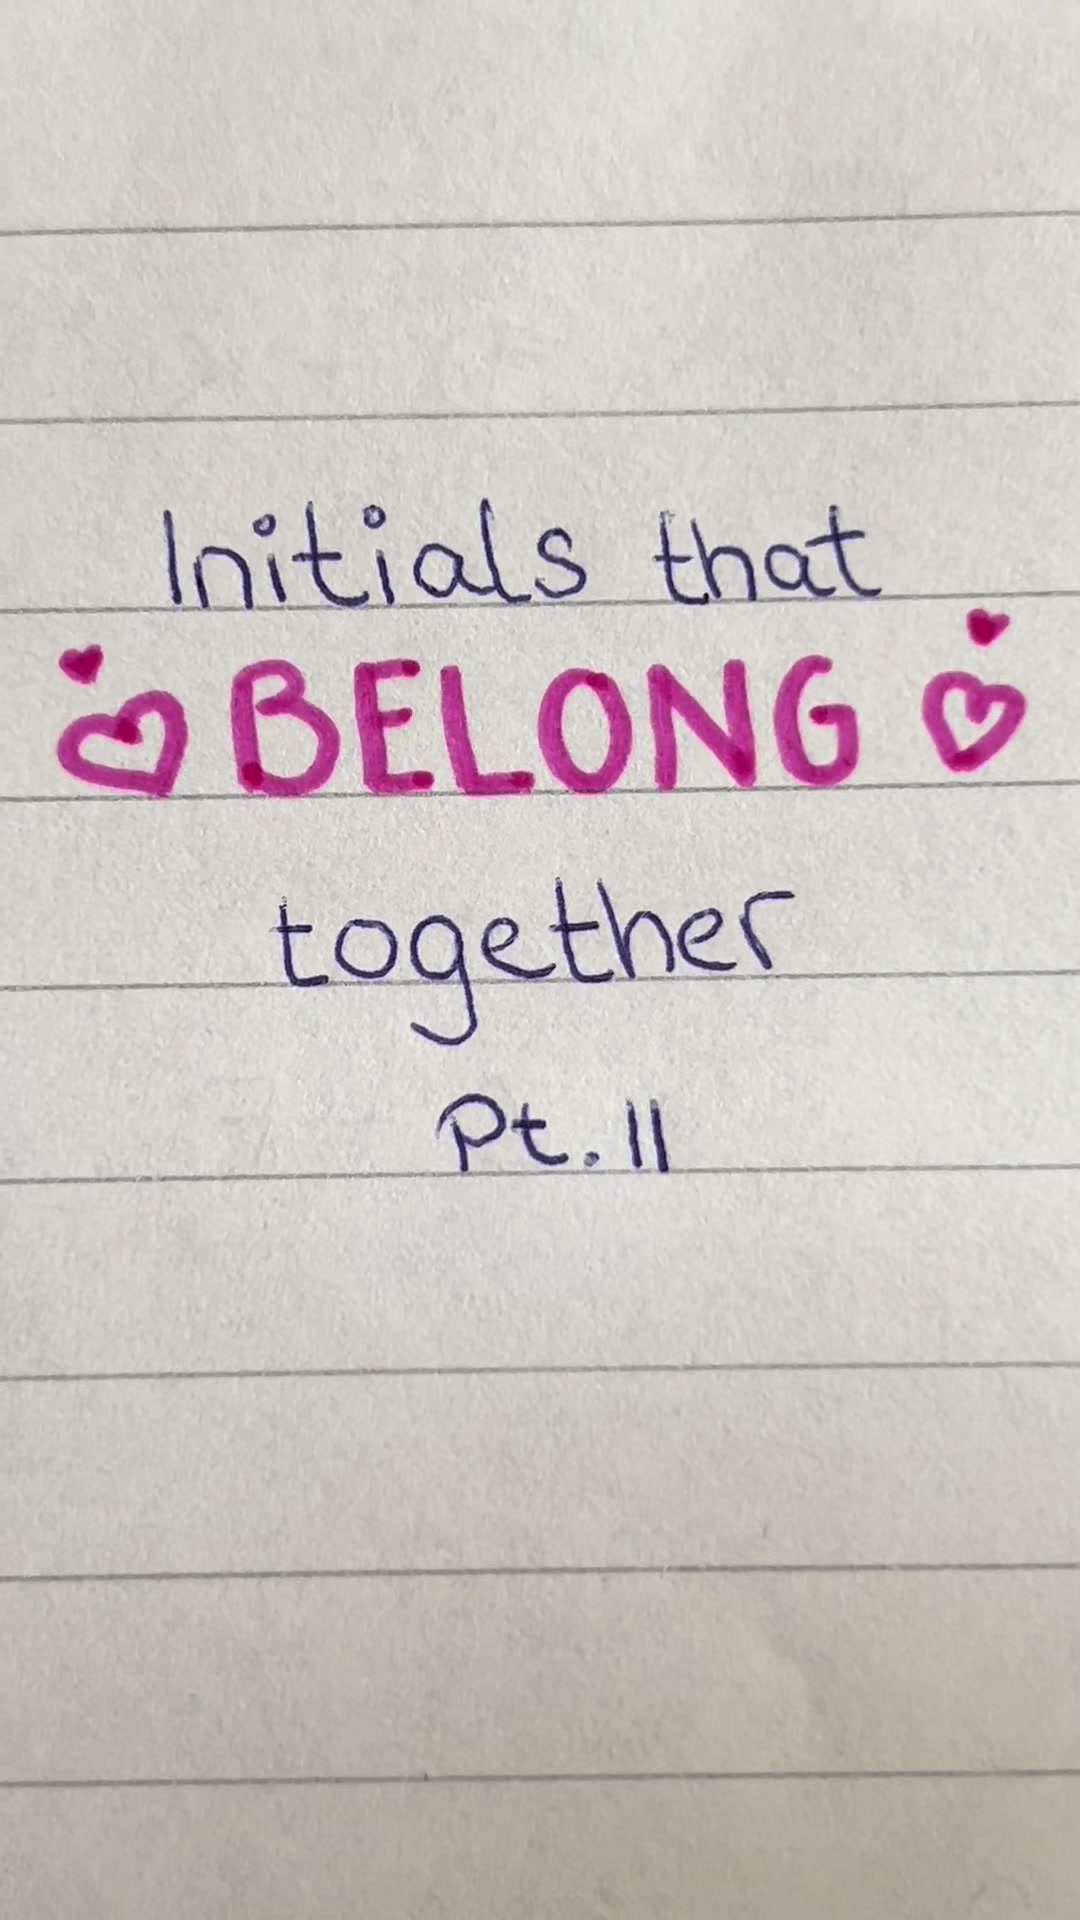 Initials that
BELONG
together
Pt. II